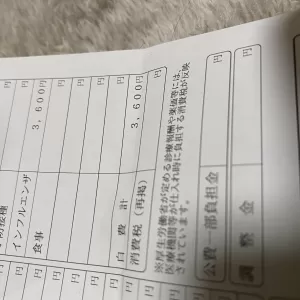 防接種
インフルエンザ 3,600円
食事 円
円
円
自費計 3,600円
消費税(再掲) 円
※厚生労働省が定める診療報酬や薬価等には、
医療機関等が仕入れ時に負担する消費税が反映
されています。
公費一部負担金 円
調整金 円
円
円
円
円
円
円
円